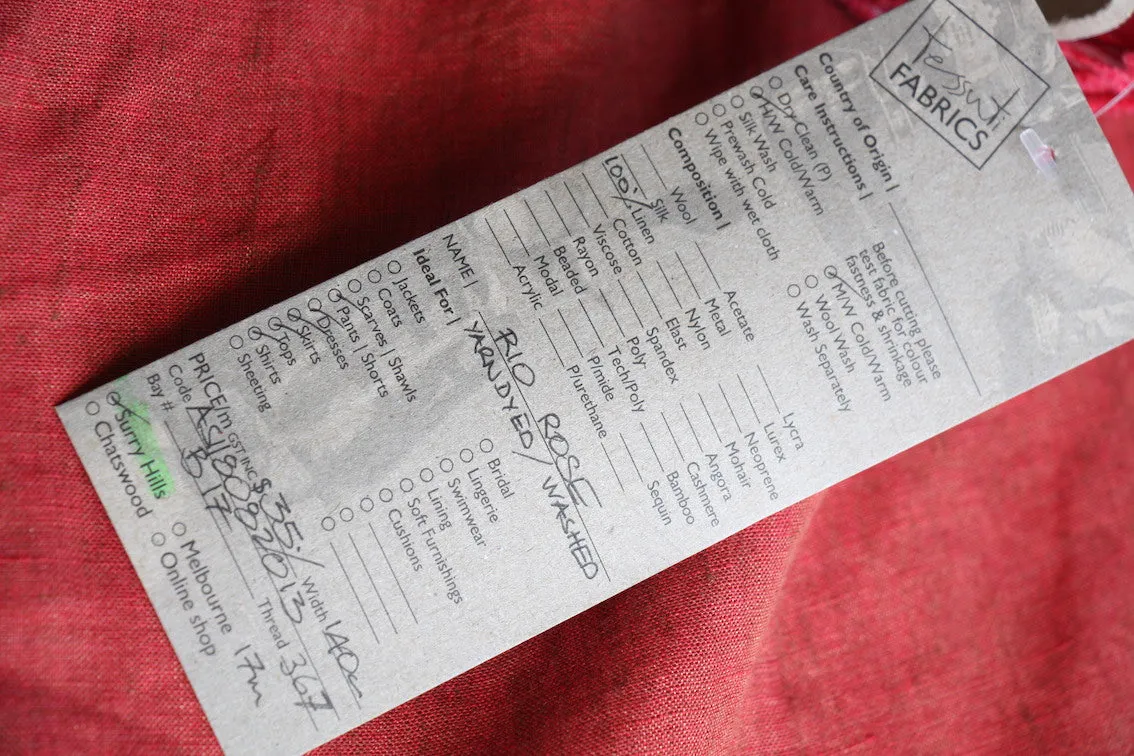 Tessuti
FABRICS
Country of Origin |
Care Instructions |
Dry Clean (P)
H/W Cold/Warm
Silk Wash
Prewash Cold
Wipe with wet cloth
Before cutting please
test fabric for colour
fastness & shrinkage
M/W Cold/Warm
Wool Wash
Wash Separately
Composition |
Wool
Silk
100% Linen
Cotton
Viscose
Rayon
Beaded
Modal
Acrylic
Acetate
Metal
Nylon
Elast
Spandex
Poly
Tech/Poly
P/mide
P/urethane
Lycra
Lurex
Neoprene
Mohair
Angora
Cashmere
Bamboo
Sequin
NAME | RIO ROSE
YARNDYED/WASHED
Ideal For |
Jackets
Coats
Scarves | Shawls
Pants | Shorts
Dresses
Skirts
Tops
Shirts
Sheeting
Bridal
Lingerie
Swimwear
Lining
Soft Furnishings
Cushions
PRICE/m GST INC $35/ Width 140cm
Code Thread 367
Bay #
Surry Hills
Chatswood
Melbourne
Online shop
17m